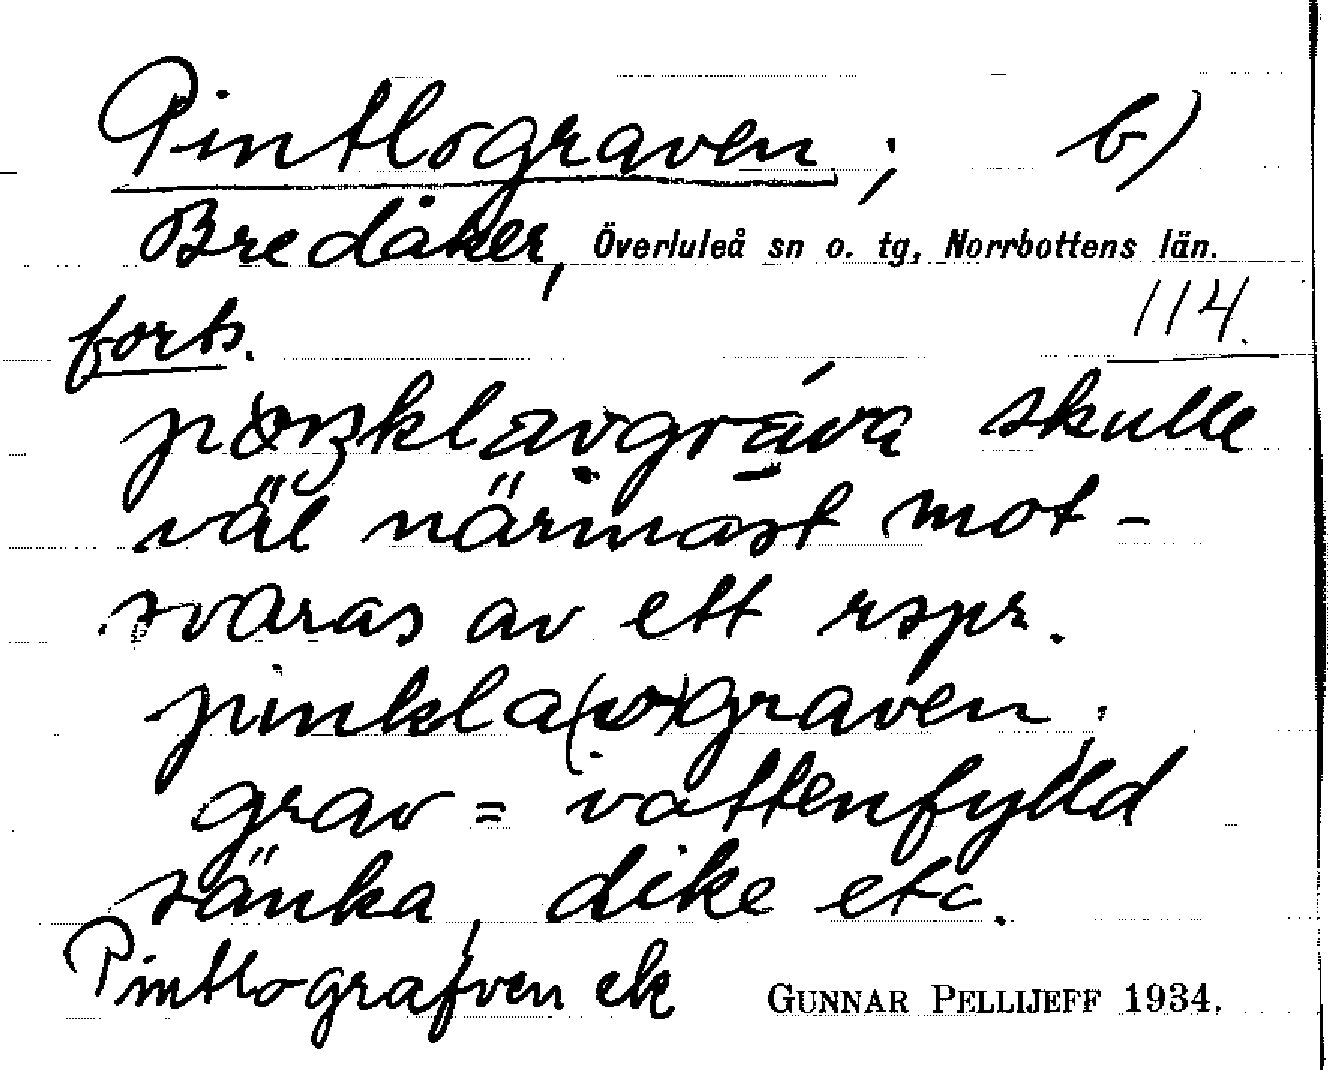 Pintlograven; b)
Bredåker, Överluleå sn o. tg, Norrbottens län.
forts. 114.
skulle
väl närmast mot-
svaras av ett rspr.
pinkla(v)graven;
grav = vattenfylld
sänka, dike etc.
Pintlografven ek GUNNAR PELLIJEFF 1934.